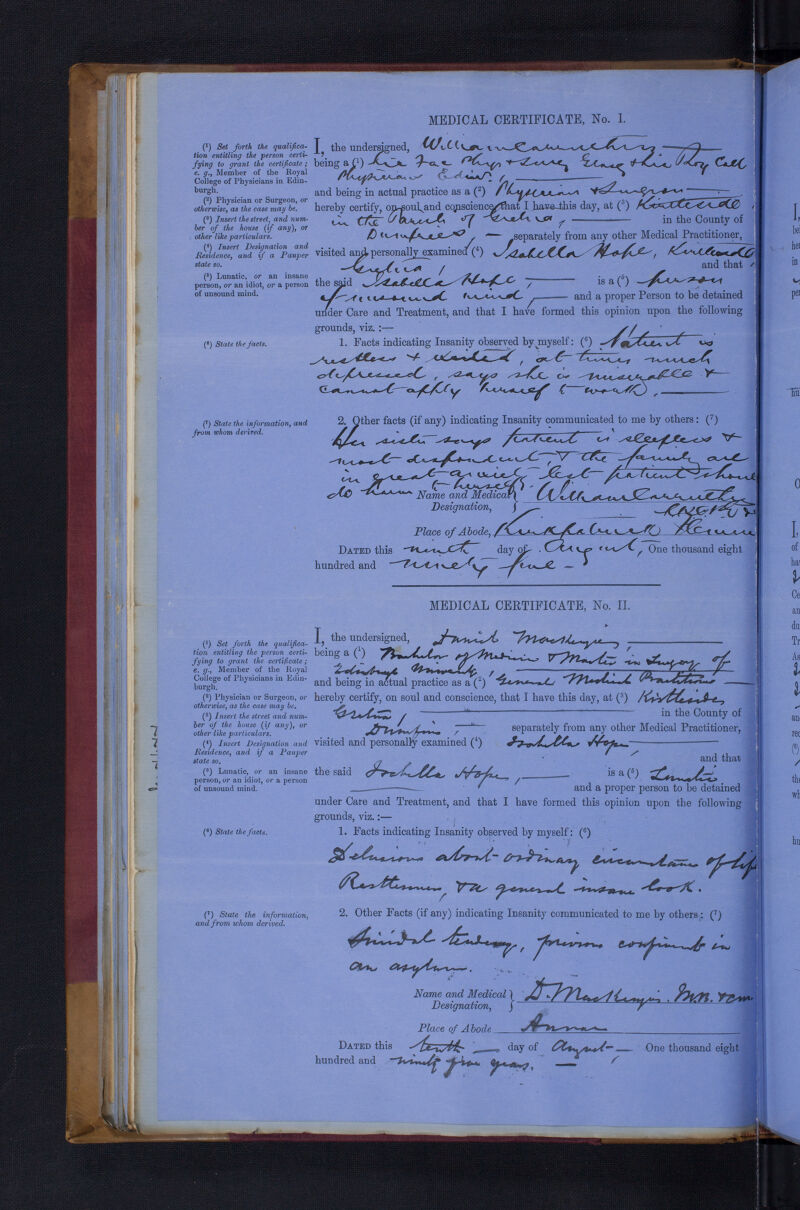 MEDICAL CERTIFICATE, No. I.
(¹) Set forth the qualifica-
tion entitling the person certi-
fying to grant the certificate;
e. g., Member of the Royal
College of Physicians in Edin-
burgh.
(²) Physician or Surgeon, or
otherwise, as the case may be.
(³) Insert the street, and num-
ber of the house (if any), or
other like particulars.
(⁴) Insert Designation and
Residence, and if a Pauper
state so.
(⁵) Lunatic, or an insane
person, or an idiot, or a person
of unsound mind.
I, the undersigned, William Carruthers
being a (¹) Lic Fac Phys & Surg Glasg & Lic Roy Coll
Physicians Edinr.
and being in actual practice as a (²) Physician & Surgeon
hereby certify, on soul and conscience, that I have this day, at (³) Kirtleside
in the Parish of Gretna, in the County of
Dumfries, separately from any other Medical Practitioner,
visited and personally examined (⁴) Isabella Hope, Kirtleside
Gretna, and that
the said Isabella Hope, is a (⁵) person
of unsound mind, and a proper Person to be detained
under Care and Treatment, and that I have formed this opinion upon the following
grounds, viz. :—
(⁶) State the facts.
1. Facts indicating Insanity observed by myself: (⁶) Patient is
restless & excited, at times much
depressed, says she is miserable &
cannot apply herself to work,
(⁷) State the information, and
from whom derived.
2. Other facts (if any) indicating Insanity communicated to me by others: (⁷)
Her sister says patient is sleepless &
most despondent, & the family are
in great anxiety lest patient should
do harm to herself.
Name and Medical Designation, William Carruthers
Place of Abode, Kirkpatrick Fleming
DATED this ninth day of August, One thousand eight
hundred and ninety five -
MEDICAL CERTIFICATE, No. II.
(¹) Set forth the qualifica-
tion entitling the person certi-
fying to grant the certificate;
e. g., Member of the Royal
College of Physicians in Edin-
burgh.
(²) Physician or Surgeon, or
otherwise, as the case may be.
(³) Insert the street and num-
ber of the house (if any), or
other like particulars.
(⁴) Insert Designation and
Residence, and if a Pauper
state so.
(⁵) Lunatic, or an insane
person, or an idiot, or a person
of unsound mind.
I, the undersigned, Daniel MacKenzie,
being a (¹) Bachelor of Medicine & Master in Surgery of
Edinburgh University
and being in actual practice as a (²) General Medical Practitioner
hereby certify, on soul and conscience, that I have this day, at (³) Kirtleside,
Gretna, in the County of
Dumfries, separately from any other Medical Practitioner,
visited and personally examined (⁴) Isabella Hope
and that
the said Isabella Hope, is a (⁵) Lunatic
and a proper person to be detained
under Care and Treatment, and that I have formed this opinion upon the following
grounds, viz. :—
(⁶) State the facts.
1. Facts indicating Insanity observed by myself: (⁶)
Delusions about ordinary circumstances of life
Restlessness, & a general insane look.
(⁷) State the information,
and from whom derived.
2. Other Facts (if any) indicating Insanity communicated to me by others: (⁷)
Suicidal tendency, previous confinement in
an asylum.
Name and Medical Designation, D. MacKenzie. M.B. & CM
Place of Abode Annan
DATED this tenth day of August One thousand eight
hundred and ninety five years.